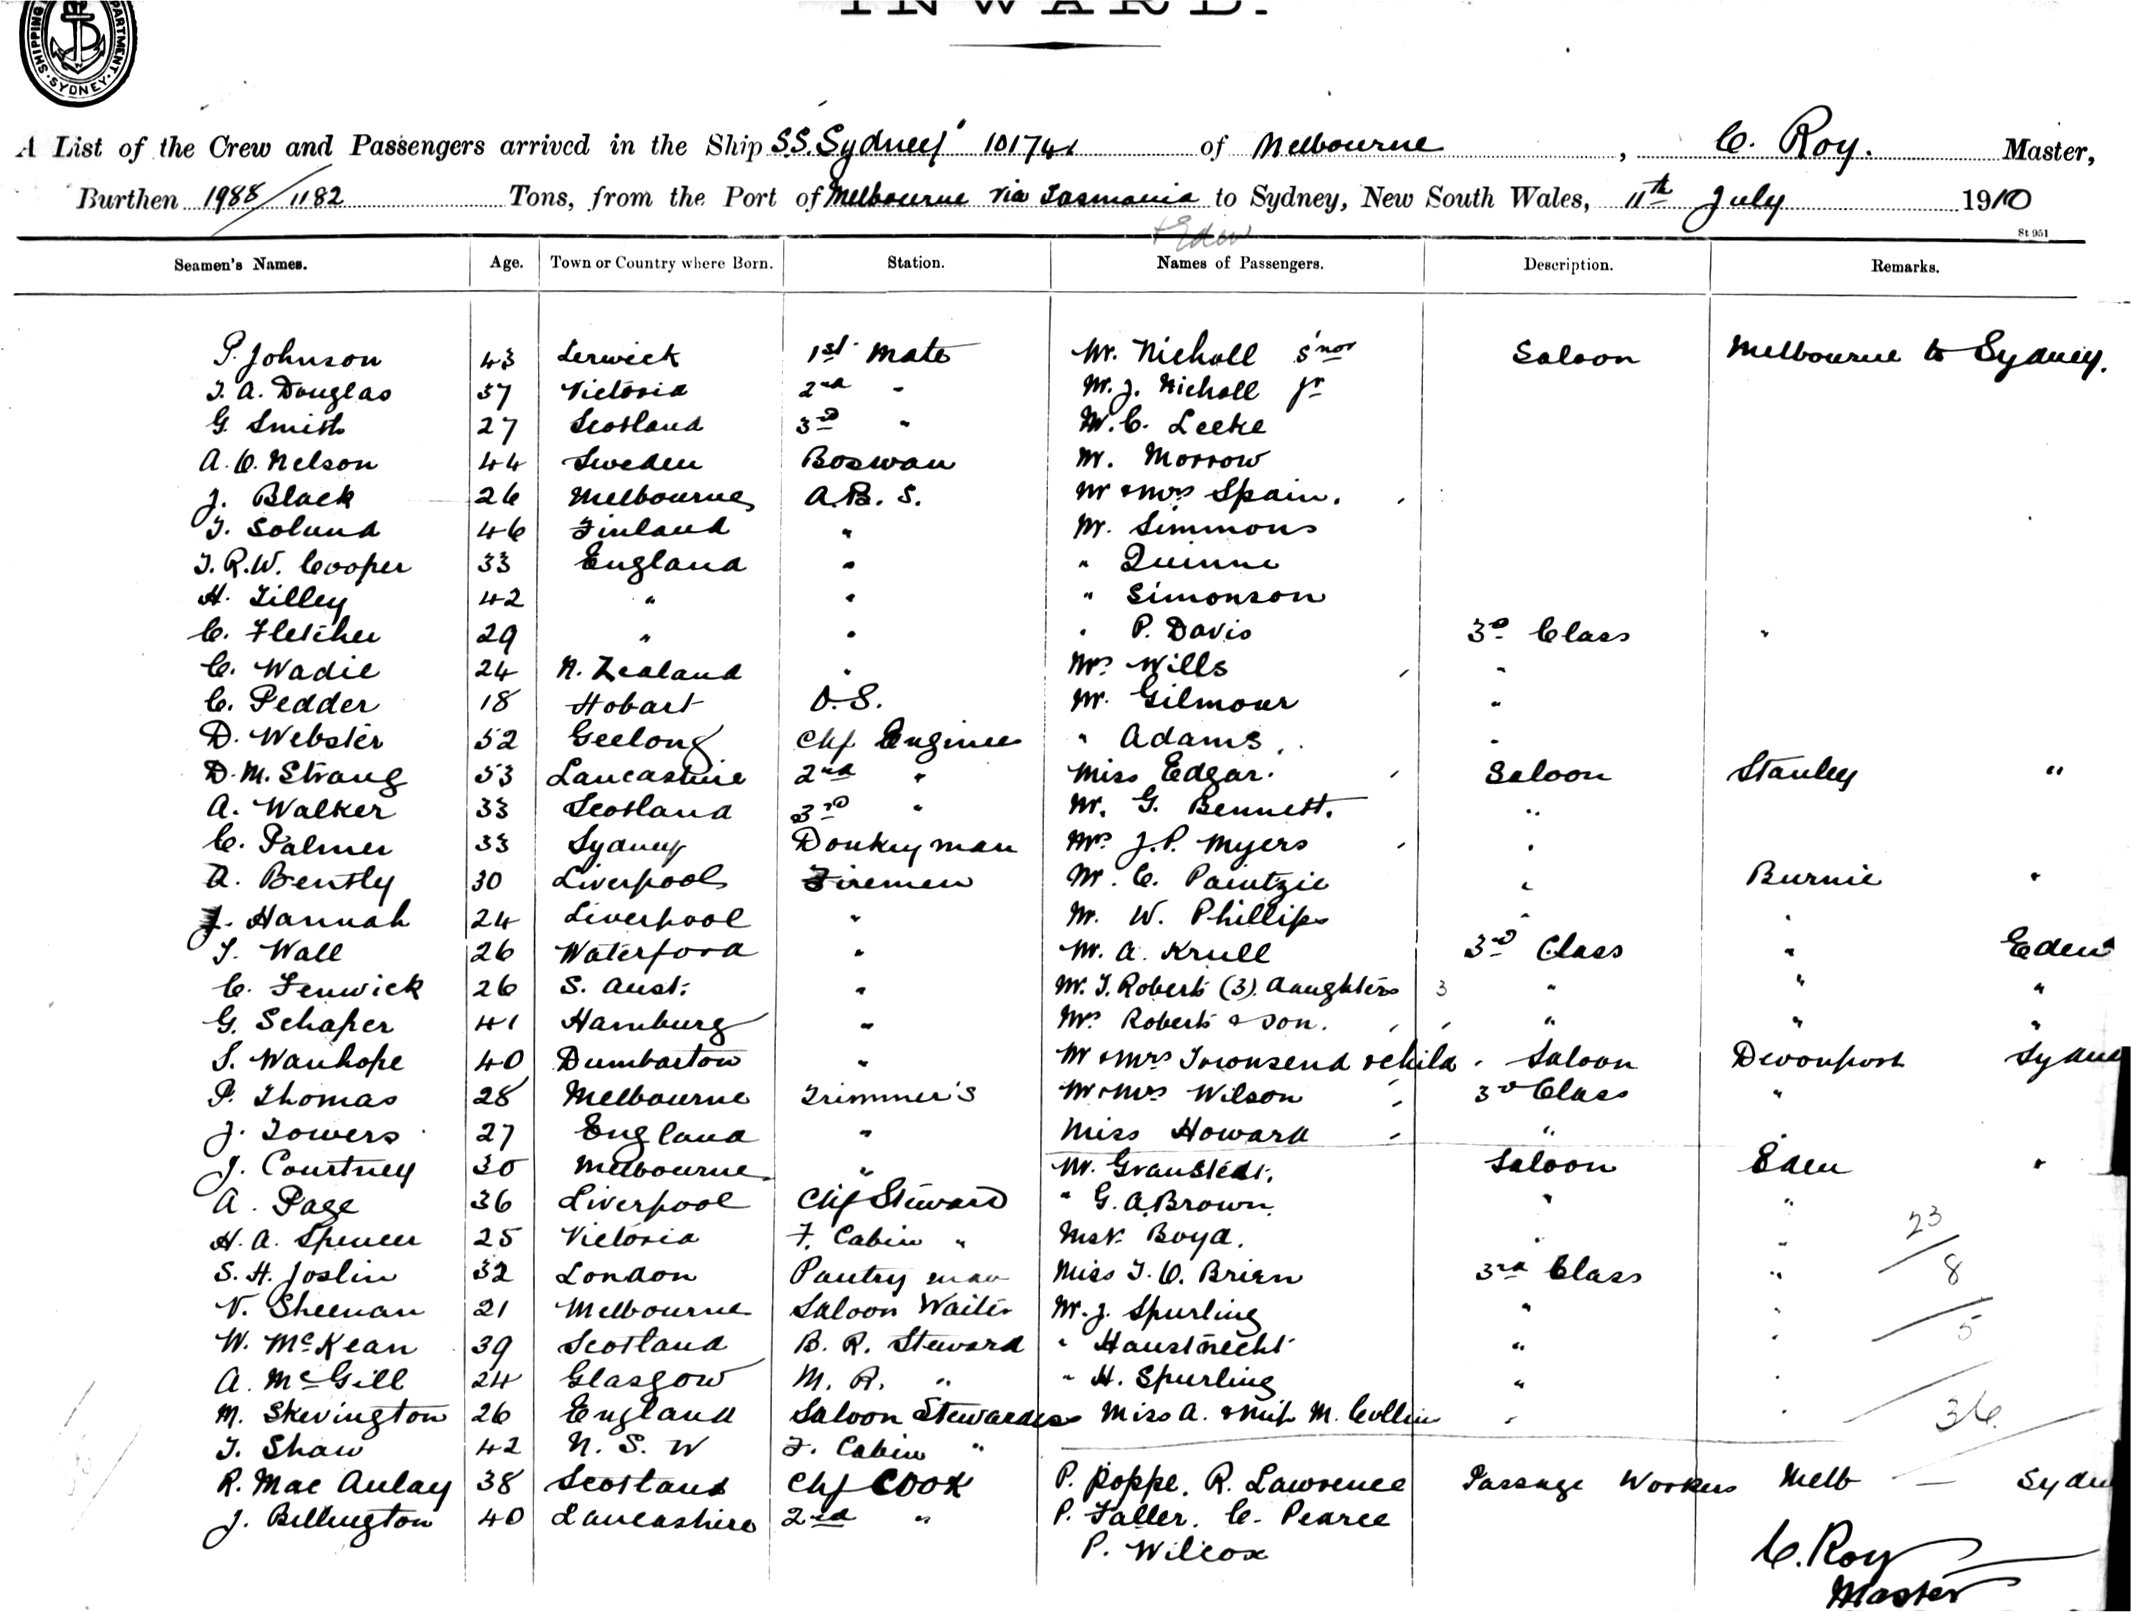 SHIPPING DEPARTMENT SYDNEY
INWARD.
A List of the Crew and Passengers arrived in the Ship S.S. Sydney 101741 of Melbourne, C. Roy. Master,
Burthen 1988/1182 Tons, from the Port of Melbourne via Tasmania to Sydney, New South Wales, 11th July 1910
+ Eden
St 951
Seamen's Names. Age. Town or Country where Born. Station. Names of Passengers. Description. Remarks.
P. Johnson 43 Lerwick 1st mate Mr. Nicholl s'nor Saloon Melbourne to Sydney.
T. A. Douglas 37 Victoria 2nd " Mr. J. Nicholl Jr
G. Smith 27 Scotland 3rd " Mr. C. Leeke
A. O. Nelson 44 Sweden Boswan Mr. Morrow
J. Black 26 Melbourne A.B.S. Mr & Mrs Spain.
T. Solund 46 Finland " Mr. Simmons
T. R. W. Cooper 33 England " " Quinne
H. Tilley 42 " " " Simonson
C. Fletcher 29 " " " P. Davis 3rd Class "
C. Wadie 24 N. Zealand " Mrs Wills "
C. Pedder 18 Hobart O.S. Mr. Gilmour "
D. Webster 52 Geelong Chf Engineer " Adams "
D. M. Strang 53 Lancashire 2nd " Miss Edgar. Saloon Stanley "
A. Walker 33 Scotland 3rd " Mr. G. Bennett. "
C. Palmer 33 Sydney Donkeyman Mrs J. P. Myers "
A. Bently 30 Liverpool Firemen Mr. C. Paintzie " Burnie "
J. Hannah 24 Liverpool " Mr. W. Phillips " "
T. Wall 26 Waterford " Mr. A. Krull 3rd Class " Eden
C. Fenwick 26 S. Aust. " Mr. T. Roberts (3) daughters 3 " " "
G. Schaper 41 Hamburg " Mrs Roberts & son. " " "
S. Wauhope 40 Dumbarton " Mr & Mrs Townsend & child Saloon Devonport Sydne
P. Thomas 28 Melbourne Trimmer's Mr & Mrs Wilson 3rd Class "
J. Towers 27 England " Miss Howard " "
J. Courtney 30 Melbourne " Mr. Granstedt. Saloon Eden "
A. Page 36 Liverpool Chf Steward " G. A. Brown. " "
H. A. Spencer 25 Victoria F. Cabin " Mstr. Boyd. " " 23
S. H. Joslin 32 London Pantry man Miss T. O. Brien 3rd Class " 8
V. Sheenan 21 Melbourne Saloon Waiter Mr. J. Spurling " " 5
W. McKean 39 Scotland B. R. Steward " Haustnecht " "
A. McGill 24 Glasgow M. R. " " H. Spurling " "
M. Skevington 26 England Saloon Stewardess Miss A. & Miss M. Collin " " 36
T. Shaw 42 N. S. W F. Cabin "
R. Mac Aulay 38 Scotland Chf Cook P. Poppe. R. Lawrence Passage Workers Melb — Sydne
J. Billington 40 Lancashire 2nd " P. Faller. C. Pearce
P. Wilcox
C. Roy
Master